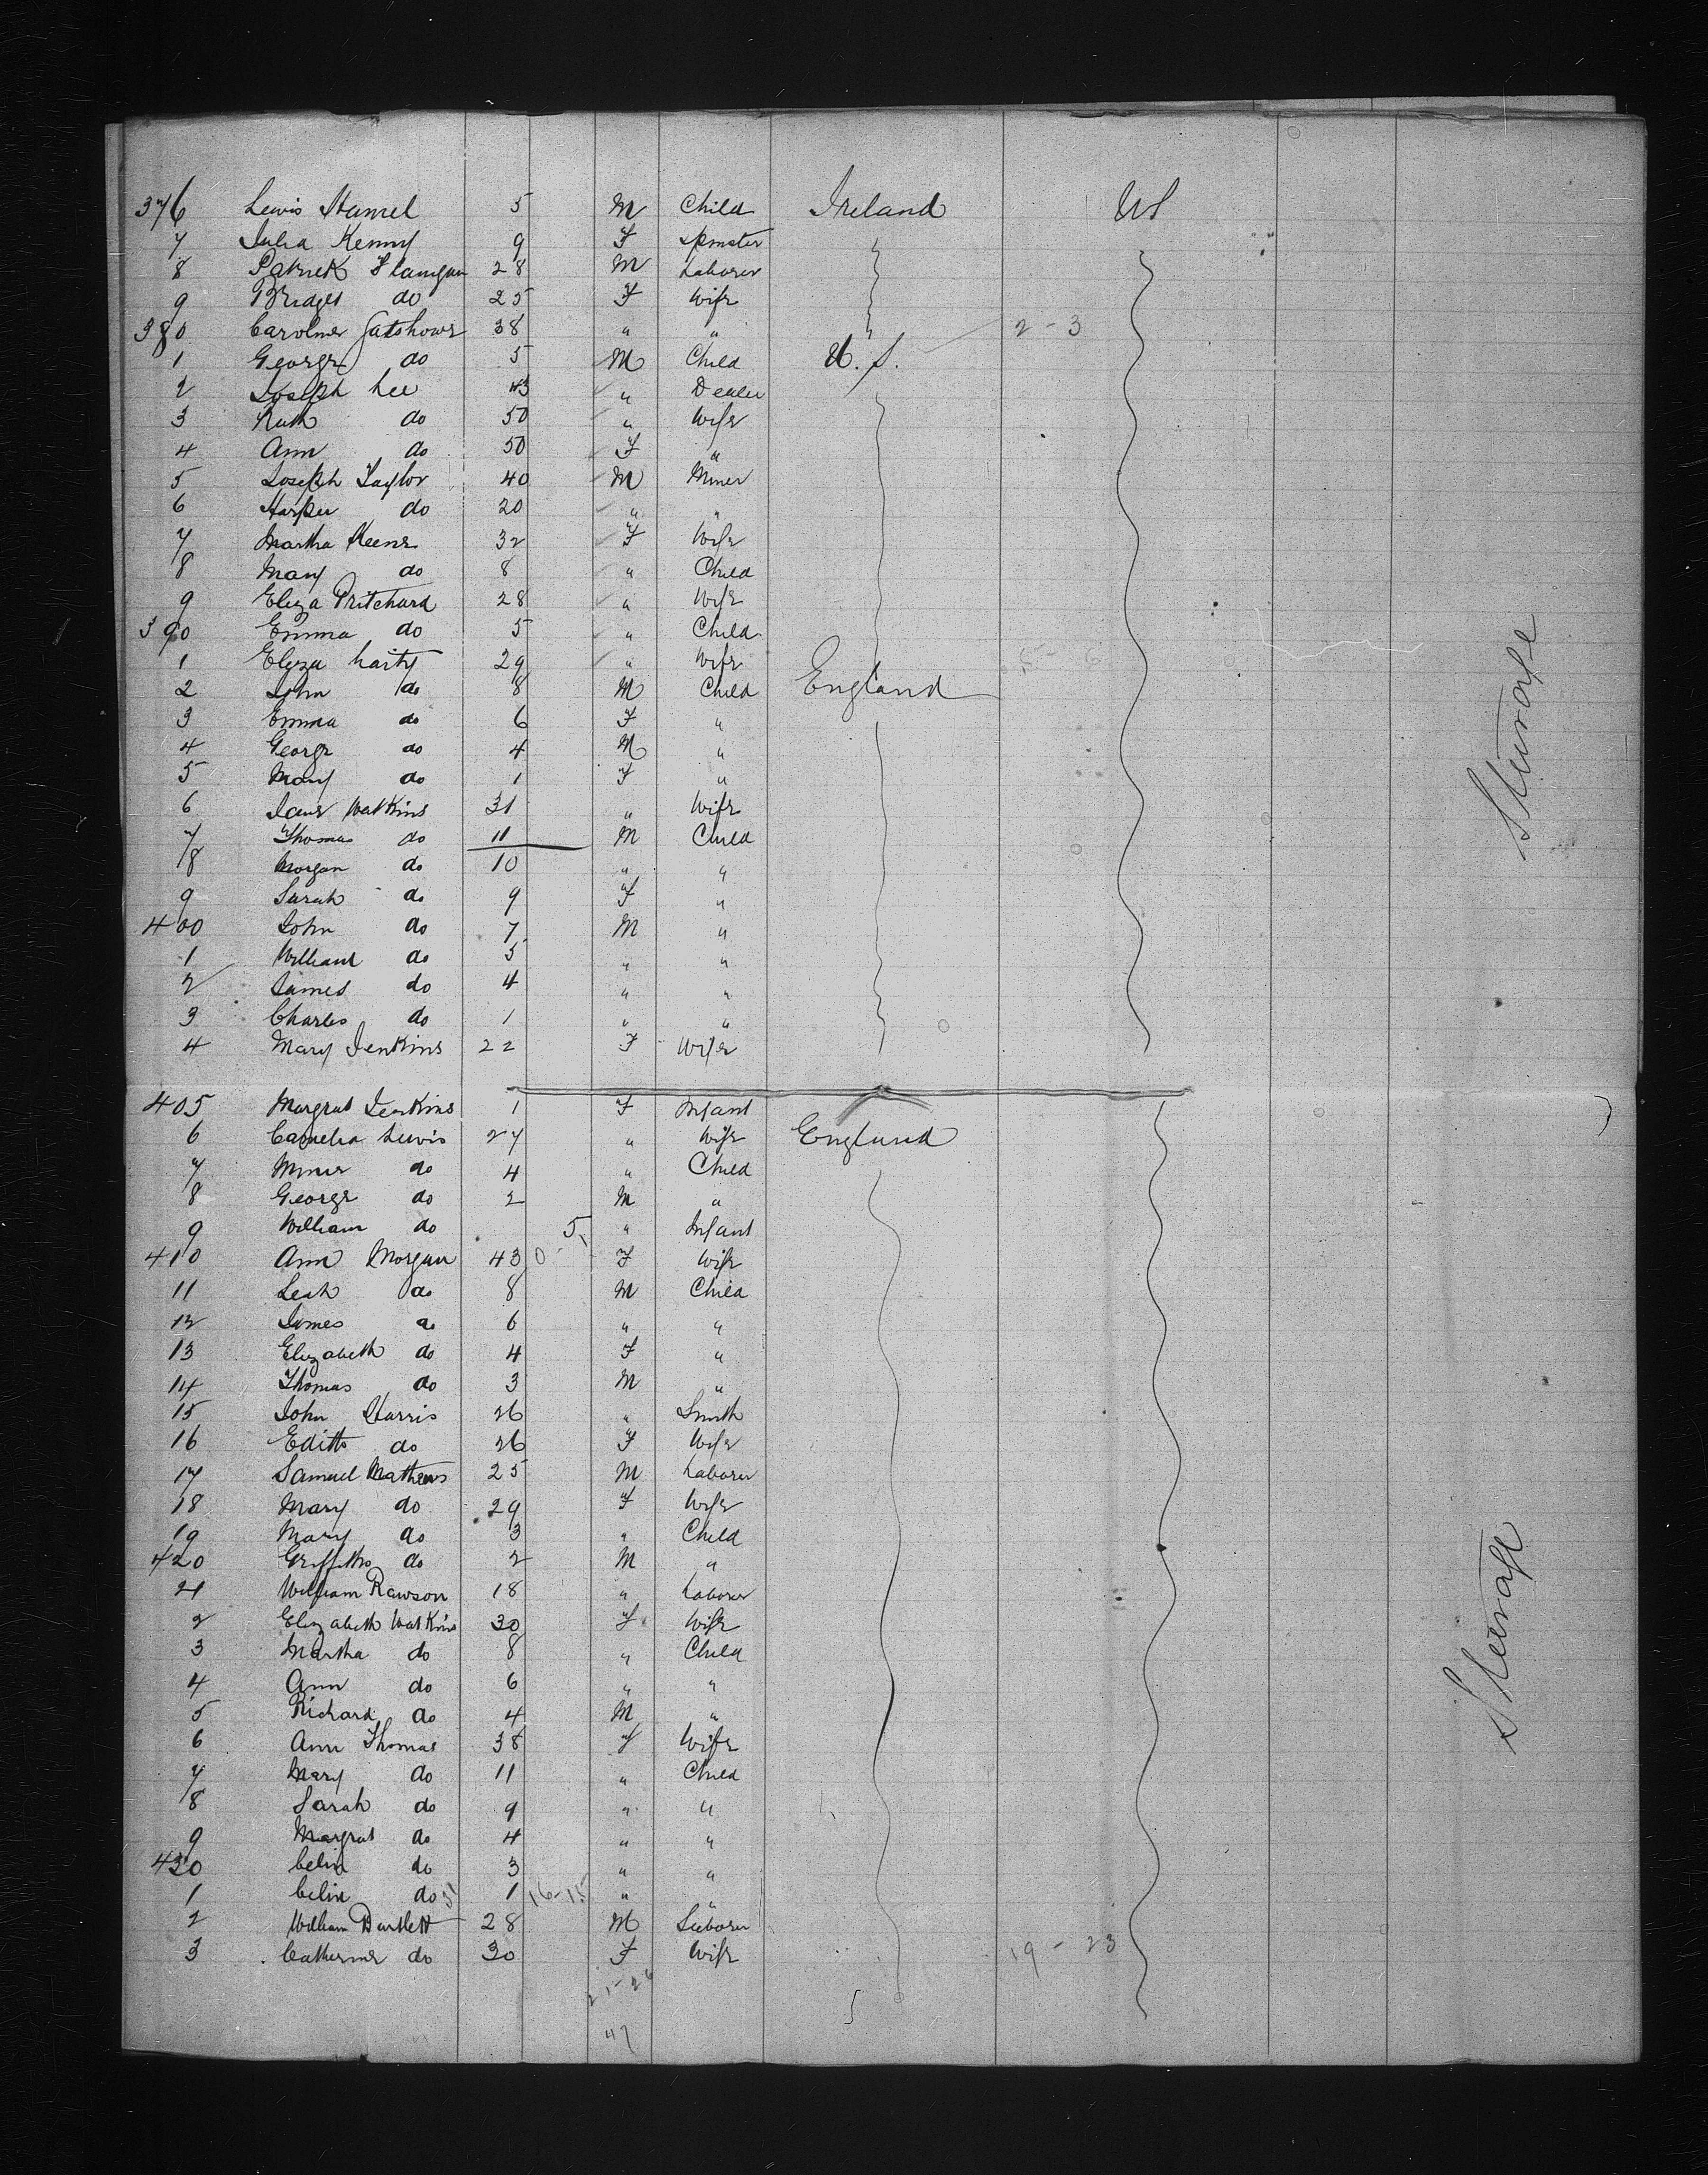 376 Lewis Hamel 5 M Child Ireland US
7 Julia Kenny 9 F Spinster
8 Patrick Flanigan 28 M Laborer
9 Bridget do 25 F Wife
380 Caroline 38 " " 2-3
1 George do 5 M Child U.S.
2 Joseph Lee 43 " Dealer
3 Ruth do 50 " Wife
4 Ann do 50 F "
5 Joseph Taylor 40 M Miner
6 Harper do 20 " "
7 Martha Keene 32 F Wife
8 Mary do 8 " Child
9 Eliza Pritchard 28 " Wife
390 Emma do 5 " Child
1 Eliza 29 " Wife
2 John do 8 M Child England
3 Emma do 6 F "
4 George do 4 M "
5 Mary do 1 F "
6 Jane Watkins 31 " Wife
7 Thomas do 11 M Child
8 Morgan do 10 " "
9 Sarah do 9 F "
400 John do 7 M "
1 William do 5 " "
2 James do 4 " "
3 Charles do 1 " "
4 Mary Jenkins 22 F Wife
Steerage
405 Margrat Jenkins 1 F Infant
6 Camelia Lewis 27 " Wife England
7 do 4 " Child
8 George do 2 M "
9 William do 5 " Infant
410 Ann Morgan 43 F Wife
11 Leah do 8 M Child
12 James do 6 " "
13 Elizabeth do 4 F "
14 Thomas do 3 M "
15 John Harris 26 " Smith
16 Edith do 26 F Wife
17 Samuel Mathews 25 M Laborer
18 Mary do 29 F Wife
19 Mary do 3 " Child
420 Griffiths do 2 M "
21 William Rawson 18 " Laborer
2 Elizabeth Watkins 30 F Wife
3 Martha do 8 " Child
4 Ann do 6 " "
5 Richard do 4 M "
6 Ann Thomas 38 F Wife
7 Mary do 11 " Child
8 Sarah do 9 " "
9 Margrat do 4 " "
430 Celia do 3 " "
1 Celia do 1 16-15 " "
2 William Bartlett 28 M Laborer
3 Catherine do 30 F Wife 19-23
Steerage
47